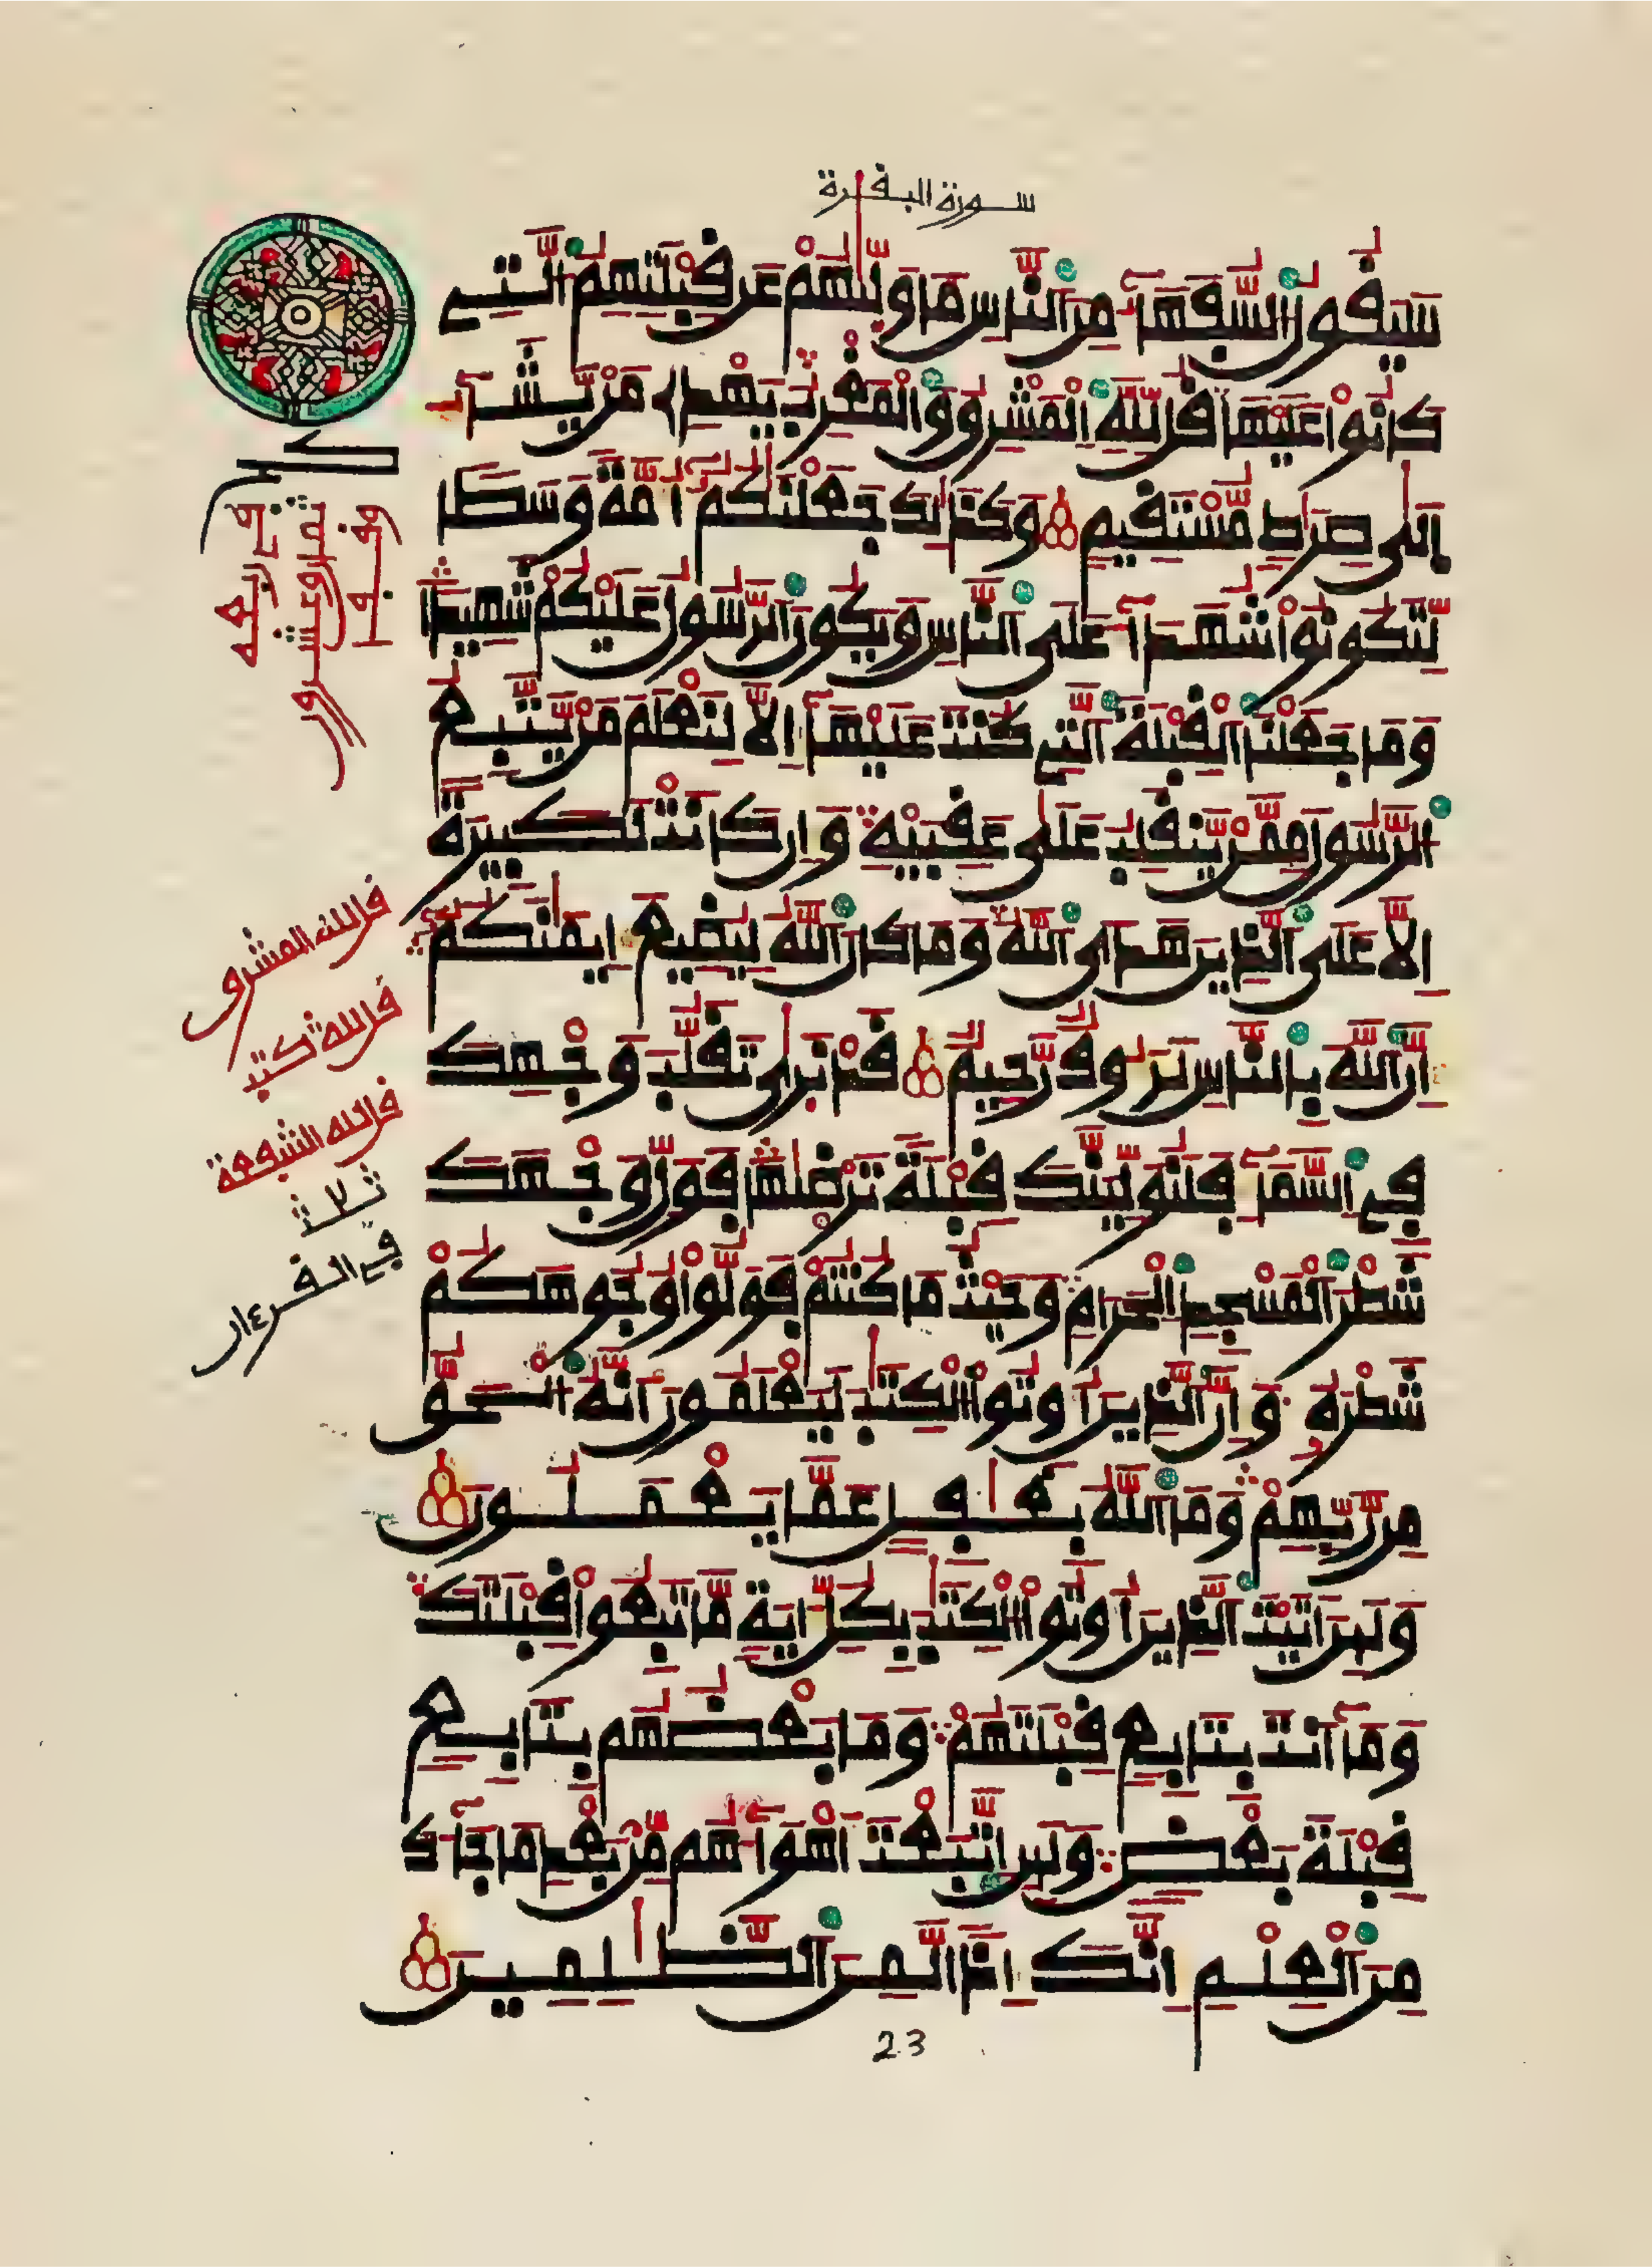 سورة البقرة
سَيَقُولُ السُّفَهَآءُ مِنَ النَّاسِ مَا وَلّٰىٰهُمْ عَن قِبْلَتِهِمُ الَّتِے
كَانُوا عَلَيْهَا قُل لِّلهِ الْمَشْرِقُ وَالْمَغْرِبُ يَهْدِے مَنْ يَّشَآءُ
اِلَىٰ صِرَٰطٍ مُّسْتَقِيمٍ وَكَذَٰلِكَ جَعَلْنَٰكُمُ أُمَّةً وَسَطًا
لِّتَكُونُوا شُهَدَآءَ عَلَى النَّاسِ وَيَكُونَ الرَّسُولُ عَلَيْكُمْ شَهِيدًا
وَمَا جَعَلْنَا الْقِبْلَةَ الَّتِے كُنتَ عَلَيْهَآ إِلَّا لِنَعْلَمَ مَنْ يَّتَّبِعُ
الرَّسُولَ مِمَّنْ يَّنقَلِبُ عَلَىٰ عَقِبَيْهِ وَإِن كَانَتْ لَكَبِيرَةً
إِلَّا عَلَى الَّذِينَ هَدَى اللهُ وَمَا كَانَ اللهُ لِيُضِيعَ إِيمَٰنَكُمُ
إِنَّ اللهَ بِالنَّاسِ لَرَءُوفٌ رَّحِيمٌ قَدْ نَرَىٰ تَقَلُّبَ وَجْهِكَ
فِے السَّمَآءِ فَلَنُوَلِّيَنَّكَ قِبْلَةً تَرْضَىٰهَا فَوَلِّ وَجْهَكَ
شَطْرَ الْمَسْجِدِ الْحَرَامِ وَحَيْثُ مَا كُنتُمْ فَوَلُّوا وُجُوهَكُمْ
شَطْرَهُ وَإِنَّ الَّذِينَ أُوتُوا الْكِتَٰبَ لَيَعْلَمُونَ أَنَّهُ الْحَقُّ
مِن رَّبِّهِمْ وَمَا اللهُ بِغَٰفِلٍ عَمَّا يَعْمَلُونَ
وَلَئِنَ اَتَيْتَ الَّذِينَ أُوتُوا الْكِتَٰبَ بِكُلِّ ءَايَةٍ مَّا تَبِعُوا قِبْلَتَكَ
وَمَآ أَنتَ بِتَابِعٍ قِبْلَتَهُمْ وَمَا بَعْضُهُم بِتَابِعٍ
قِبْلَةَ بَعْضٍ وَلَئِنِ اتَّبَعْتَ أَهْوَآءَهُم مِّنْ بَعْدِ مَا جَآءَكَ
مِنَ الْعِلْمِ إِنَّكَ إِذًا لَّمِنَ الظَّٰلِمِينَ
قل لله المشرق
قل لله كتب
قل لله الشفعة
ثلث
في القرءان
23